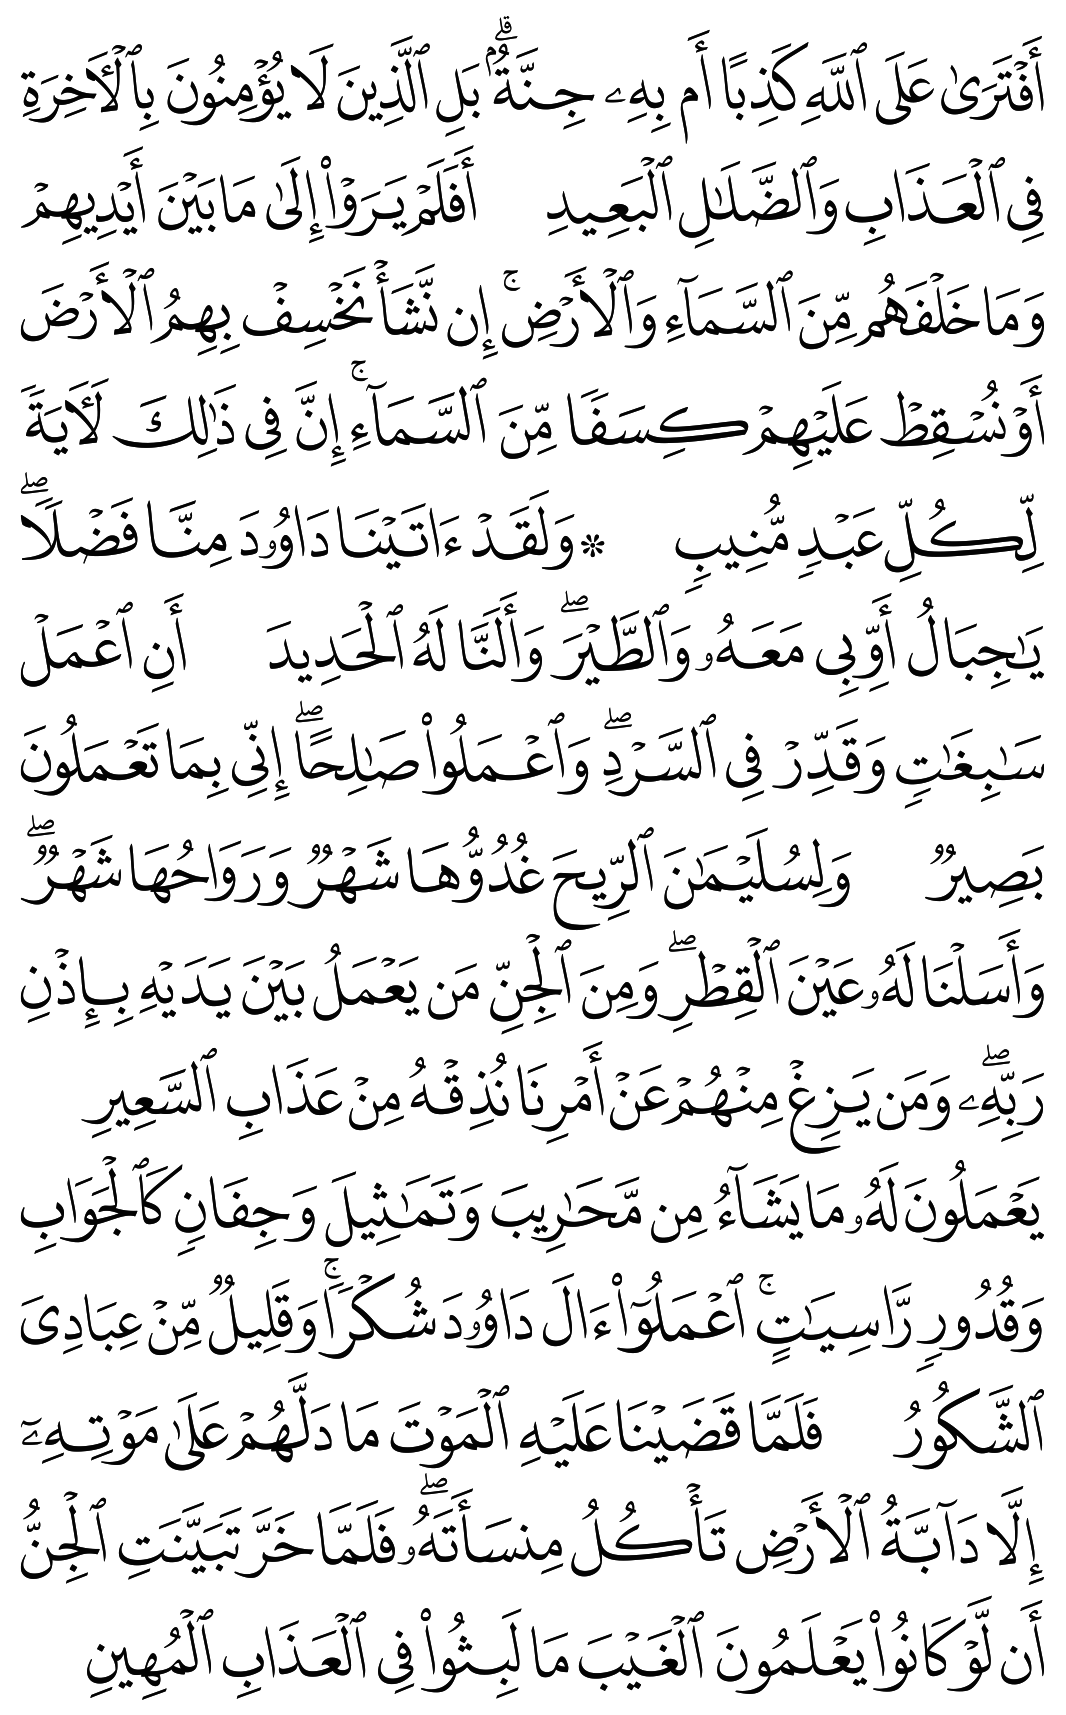 أَفۡتَرَىٰ عَلَى ٱللَّهِ كَذِبًا أَم بِهِۦ جِنَّةُۢۗ بَلِ ٱلَّذِينَ لَا يُؤۡمِنُونَ بِٱلۡأٓخِرَةِ
فِي ٱلۡعَذَابِ وَٱلضَّلَٰلِ ٱلۡبَعِيدِ أَفَلَمۡ يَرَوۡاْ إِلَىٰ مَا بَيۡنَ أَيۡدِيهِمۡ
وَمَا خَلۡفَهُم مِّنَ ٱلسَّمَآءِ وَٱلۡأَرۡضِۚ إِن نَّشَأۡ نَخۡسِفۡ بِهِمُ ٱلۡأَرۡضَ
أَوۡ نُسۡقِطۡ عَلَيۡهِمۡ كِسَفٗا مِّنَ ٱلسَّمَآءِۚ إِنَّ فِي ذَٰلِكَ لَأٓيَةٗ
لِّكُلِّ عَبۡدٖ مُّنِيبٖ ۞وَلَقَدۡ ءَاتَيۡنَا دَاوُۥدَ مِنَّا فَضۡلٗاۖ
يَٰجِبَالُ أَوِّبِي مَعَهُۥ وَٱلطَّيۡرَۖ وَأَلَنَّا لَهُ ٱلۡحَدِيدَ أَنِ ٱعۡمَلۡ
سَٰبِغَٰتٖ وَقَدِّرۡ فِي ٱلسَّرۡدِۖ وَٱعۡمَلُواْ صَٰلِحًاۖ إِنِّي بِمَا تَعۡمَلُونَ
بَصِيرٞ وَلِسُلَيۡمَٰنَ ٱلرِّيحَ غُدُوُّهَا شَهۡرٞ وَرَوَاحُهَا شَهۡرٞۖ
وَأَسَلۡنَا لَهُۥ عَيۡنَ ٱلۡقِطۡرِۖ وَمِنَ ٱلۡجِنِّ مَن يَعۡمَلُ بَيۡنَ يَدَيۡهِ بِإِذۡنِ
رَبِّهِۦۖ وَمَن يَزِغۡ مِنۡهُمۡ عَنۡ أَمۡرِنَا نُذِقۡهُ مِنۡ عَذَابِ ٱلسَّعِيرِ
يَعۡمَلُونَ لَهُۥ مَا يَشَآءُ مِن مَّحَٰرِيبَ وَتَمَٰثِيلَ وَجِفَانٖ كَٱلۡجَوَابِ
وَقُدُورٖ رَّاسِيَٰتٍۚ ٱعۡمَلُوٓاْ ءَالَ دَاوُۥدَ شُكۡرٗاۚ وَقَلِيلٞ مِّنۡ عِبَادِيَ
ٱلشَّكُورُ فَلَمَّا قَضَيۡنَا عَلَيۡهِ ٱلۡمَوۡتَ مَا دَلَّهُمۡ عَلَىٰ مَوۡتِهِۦٓ
إِلَّا دَآبَّةُ ٱلۡأَرۡضِ تَأۡكُلُ مِنسَأَتَهُۥۖ فَلَمَّا خَرَّ تَبَيَّنَتِ ٱلۡجِنُّ
أَن لَّوۡ كَانُواْ يَعۡلَمُونَ ٱلۡغَيۡبَ مَا لَبِثُواْ فِي ٱلۡعَذَابِ ٱلۡمُهِينِ